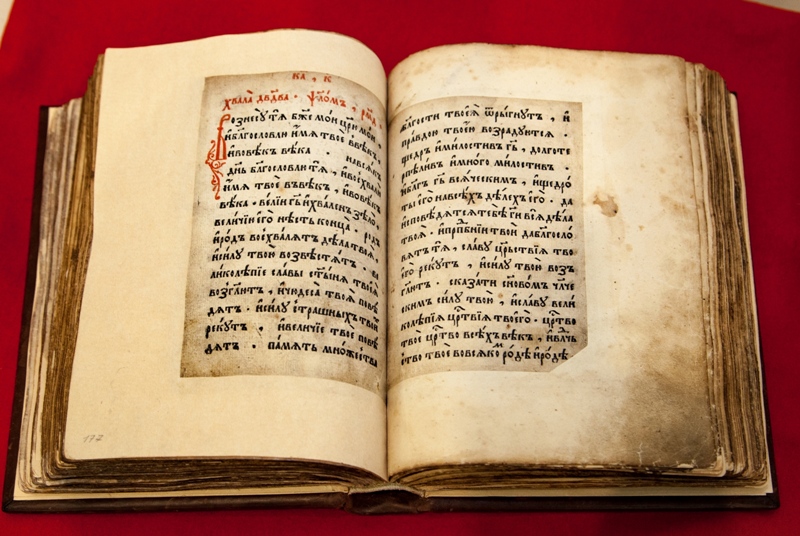 ка , к
хвала̀ двд҃ва · ѱ҃ло́мъ , рм҃д ·
Вознесу̀ тѧ̀ бж҃е мо́и цр҃ю мо́и ,
и҆ блг҃ословлю̀ и҆́мѧ твоѐ ввѣ́къ ,
и҆ вовѣ́къ вѣ́ка навсѧ́къ
дн҃ь блг҃ословлю̀ тѧ̀ , и҆ восхвалю̀
и҆́мѧ твоѐ въвѣ́къ , и҆ вовѣ́къ
вѣ́ка · ве́лїи гь҃ и҆ хва́ленъ ѕѣло̀ ·
вели́чїю є҆гѡ̀ нѣ́сть конца̀ · ро́дъ
и҆ ро́дъ восхва́лѧтъ дѣла̀ твоѧ̀ ,
и҆ си́лу твою̀ возвѣстѧ́тъ · ве
ликолѣ́пїе сла́вы ст҃ы́нѧ твоеѧ̀
возгл҃ютъ , и҆ чюдеса̀ твоѧ̀ повѣ
дѧ́тъ · и҆ си́лу стра́шныхъ твои́хъ
реку́тъ , и҆ вели́чїе твоѐ повѣ
дѧ́тъ · па́мѧть мно́жества
бл҃гости твоеѧ̀ ѿры́гнутъ , и҆
пра́вдою твое́ю возра́дуютсѧ ·
ще́дръ и҆ ми́лостивъ гь҃ , долготе
рпѣли́въ и҆ мно́го ми́лостивъ ·
бл҃гъ гь҃ всѧ́ческимъ , и҆ щедро́
ты є҆гѡ̀ на всѣ́хъ дѣ́лехъ є҆гѡ̀ · да
и҆сповѣ́дѧтсѧ тебѣ̀ гн҃ всѧ̀ дѣла̀
твоѧ̀ · и҆ прпⷣбнїи твои̑ да блг҃осло
вѧ́тъ тѧ̀ , сла́ву црⷭ҇твїѧ тво
є҆гѡ̀ реку́тъ , и҆ си́лу твою̀ возъ
гл҃ютъ · сказа́ти сн҃овѡ́мъ чл҃че
скимъ си́лу твою̀ , и҆ сла́ву вели
колѣ́пїѧ црⷭ҇твїѧ твоегѡ̀ · црⷭ҇тво
твоѐ црⷭ҇тво всѣ́хъ вѣ́къ , и҆ влⷣч
ество твоѐ во всѧ́комъ ро́дѣ и҆ ро́дѣ
177